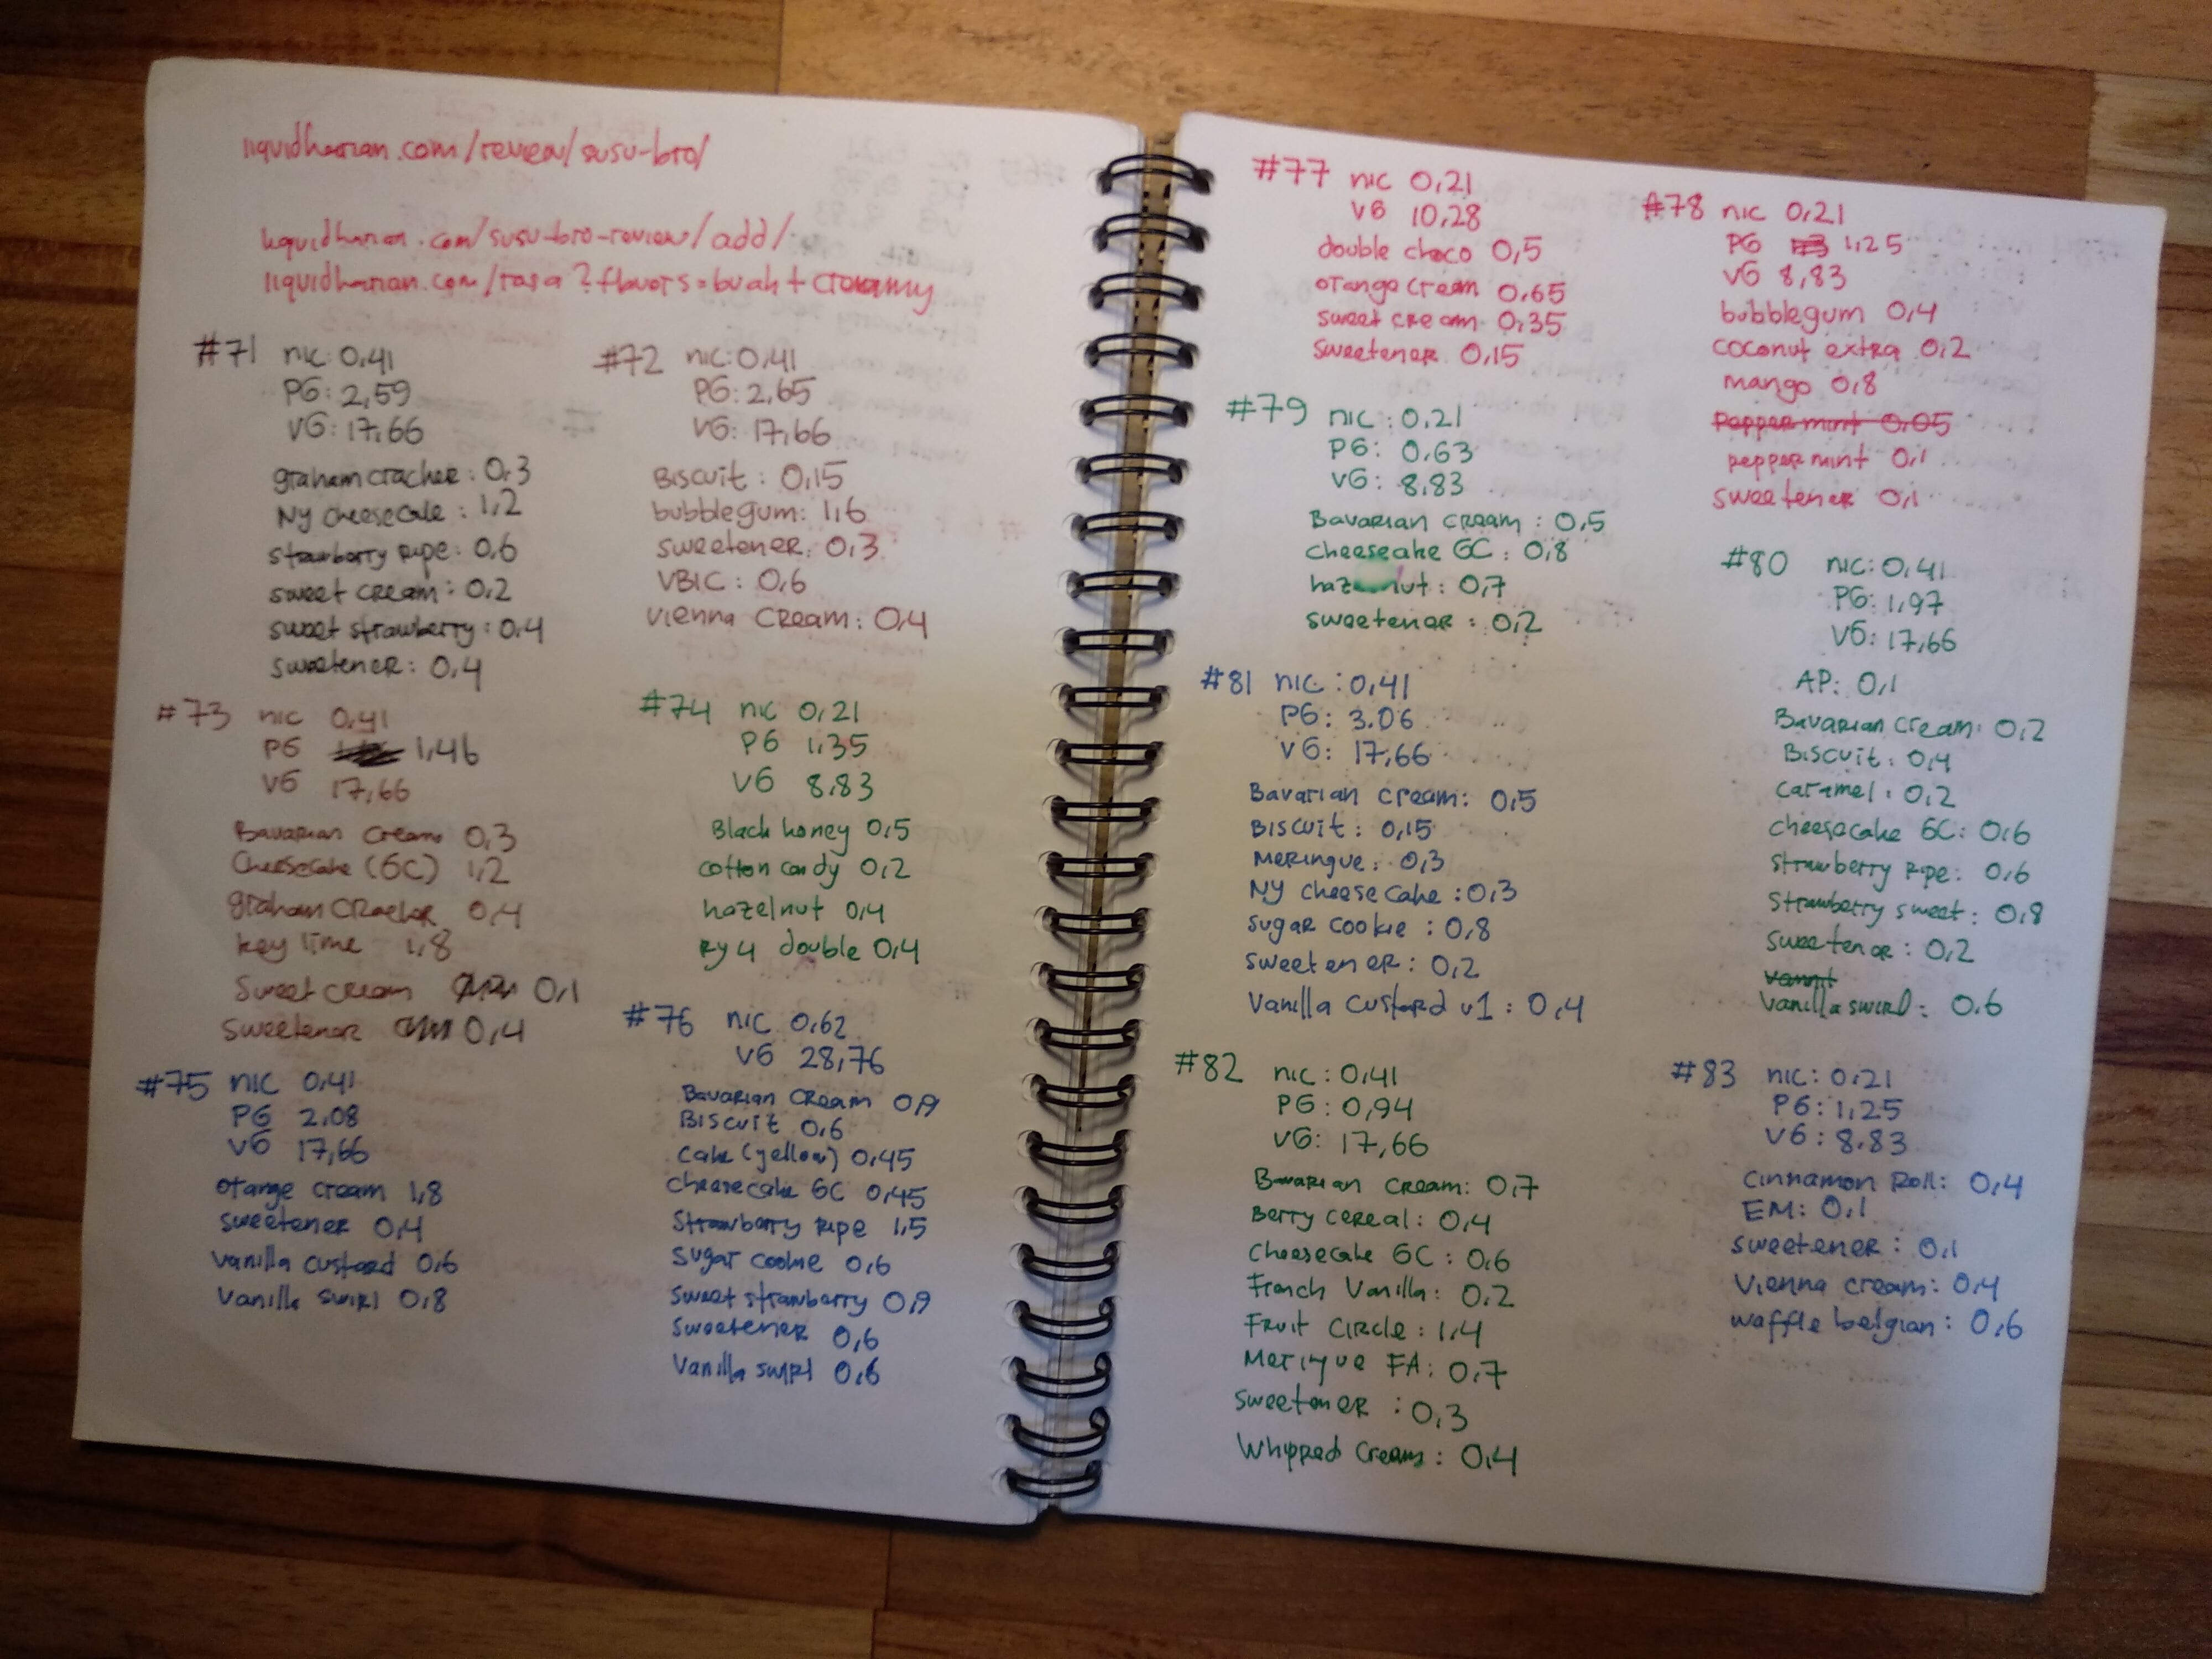 liquidharian.com/review/susu-bro/
liquidharian.com/susu-bro-review/add/
liquidharian.com/rasa?flavors=buah+creamy
#71 nic: 0,41
PG: 2,59
VG: 17,66
graham cracker: 0,3
Ny cheesecake: 1,2
strawberry ripe: 0,6
sweet cream: 0,2
sweet strawberry: 0,4
sweetener: 0,4
#72 nic: 0,41
PG: 2,65
VG: 17,66
Biscuit: 0,15
bubblegum: 1,6
sweetener: 0,3
VBIC: 0,6
vienna cream: 0,4
#73 nic 0,41
PG 1,46
VG 17,66
Bavarian cream 0,3
Cheesecake (GC) 1,2
graham cracker 0,4
key lime 1,8
Sweet cream 0,1
sweetener 0,4
#74 nic 0,21
PG 1,35
VG 8,83
Black honey 0,5
cotton candy 0,2
hazelnut 0,4
ry4 double 0,4
#75 nic 0,41
PG 2,08
VG 17,66
orange cream 1,8
sweetener 0,4
vanilla custard 0,6
vanilla swirl 0,8
#76 nic 0,62
VG 28,76
Bavarian cream 0,9
Biscuit 0,6
cake (yellow) 0,45
cheesecake GC 0,45
Strawberry ripe 1,5
sugar cookie 0,6
sweet strawberry 0,9
sweetener 0,6
vanilla swirl 0,6
#77 nic 0,21
VG 10,28
double choco 0,5
orange cream 0,65
sweet cream 0,35
sweetener 0,15
#78 nic 0,21
PG 1,25
VG 8,83
bubblegum 0,4
coconut extra 0,2
mango 0,8
Peppermint 0,05
peppermint 0,1
sweetener 0,1
#79 nic: 0,21
PG: 0,63
VG: 8,83
Bavarian cream: 0,5
cheesecake GC: 0,8
hazelnut: 0,7
sweetener: 0,2
#80 nic: 0,41
PG: 1,97
VG: 17,66
AP: 0,1
Bavarian cream: 0,2
Biscuit: 0,4
caramel: 0,2
cheesecake GC: 0,6
strawberry ripe: 0,6
strawberry sweet: 0,8
sweetener: 0,2
vanilla swirl: 0,6
#81 nic: 0,41
PG: 3.06
VG: 17,66
Bavarian cream: 0,5
Biscuit: 0,15
Meringue: 0,3
NY cheesecake: 0,3
sugar cookie: 0,8
sweetener: 0,2
Vanilla custard v1: 0,4
#82 nic: 0,41
PG: 0,94
VG: 17,66
Bavarian cream: 0,7
Berry cereal: 0,4
cheesecake GC: 0,6
French Vanilla: 0,2
Fruit circle: 1,4
FA: 0,7
sweetener: 0,3
Whipped cream: 0,4
#83 nic: 0,21
PG: 1,25
VG: 8,83
cinnamon Roll: 0,4
EM: 0,1
sweetener: 0,1
Vienna cream: 0,4
waffle belgian: 0,6